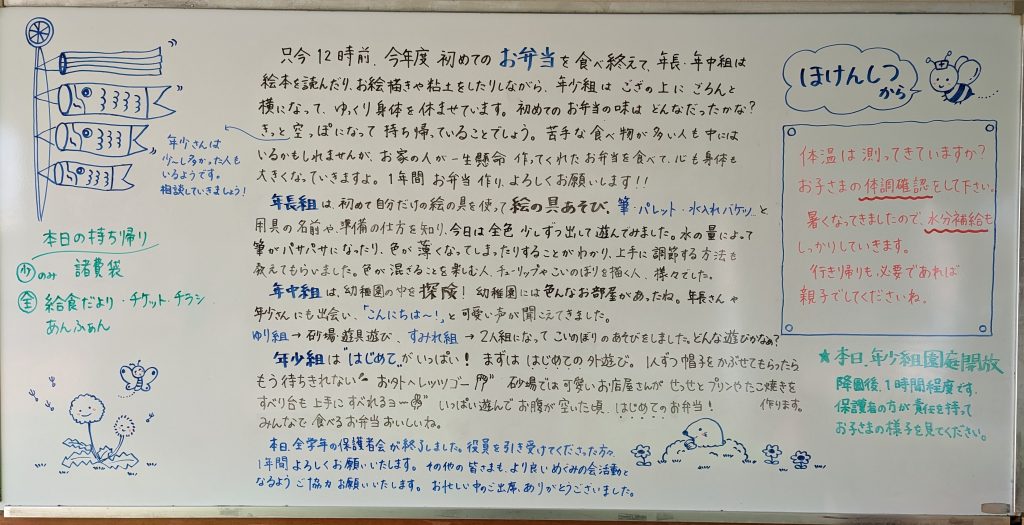 只今12時前、今年度 初めての お弁当を食べ終えて、年長・年中組は
絵本を読んだり、お絵描きや粘土をしたりしながら、年少組は ござの上に ごろんと
横になって、ゆっくり身体を休ませています。初めてのお弁当の味は どんなだったかな?
きっと空っぽになって持ち帰っていることでしょう。苦手な食べ物が多い人も中には
いるかもしれませんが、お家の人が一生懸命 作ってくれたお弁当を食べて、心も身体も
大きくなっていきますよ。1年間 お弁当作り、よろしくお願いします!!
年長組は、初めて自分だけの絵の具を使って絵の具あそび。筆・パレット・水入れバケツ…と
用具の名前や、準備の仕方を知り、今日は全色 少しずつ出して遊んでみました。水の量によって
筆がパサパサになったり、色が薄くなってしまったりすることがわかり、上手に調節する方法も
教えてもらいました。色が混ざることを楽しむ人、チューリップやこいのぼりを描く人、様々でした。
年中組は、幼稚園の中を探険! 幼稚園には色んなお部屋があったね。年長さんや
年少さんにも出会い、「こんにちは〜!」と可愛い声が聞こえてきました。
ゆり組→砂場・遊具遊び、すみれ組→2人組になってこいのぼりのあそびをしました。どんな遊びかなぁ?
年少組は"はじめて"がいっぱい! まずは はじめての外遊び。1人ずつ帽子をかぶせてもらったら
もう待ちきれない おそとへレッツゴー 砂場では可愛いお店屋さんが せっせとプリンやたこ焼きを
作ります。
すべり台も上手に すべれるヨー いっぱい遊んでお腹が空いた頃、はじめてのお弁当!
みんなで食べるお弁当おいしいね。
本日、全学年の保護者会が終了しました。役員を引き受けてくださった方々、
1年間よろしくお願いいたします。その他の皆さまも、より良いめぐみの会活動と
なるよう ご協力お願いいたします。お忙しい中のご出席、ありがとうございました。
年少さんは
少〜し多かった人も
いるようです。
相談していきましょう!
本日の持ち帰り
少のみ 諸費袋
全 給食だより・チケット・チラシ
あんふぁん
ほけんしつ
から
体温は測ってきていますか?
お子さまの体調確認をして下さい。
暑くなってきましたので、水分補給も
しっかりしていきます。
行き帰りも、必要であれば
親子でしてくださいね。
★本日、年少組園庭開放
降園後、1時間程度です。
保護者の方が責任を持って
お子さまの様子を見てください。